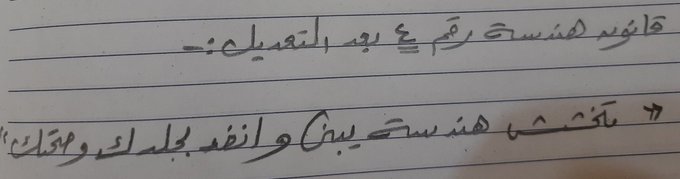 قانون هندسة رقم ٤ بعد التعديل :-
« متخشش هندسة يبني وانفد بجلدك وصحتك »